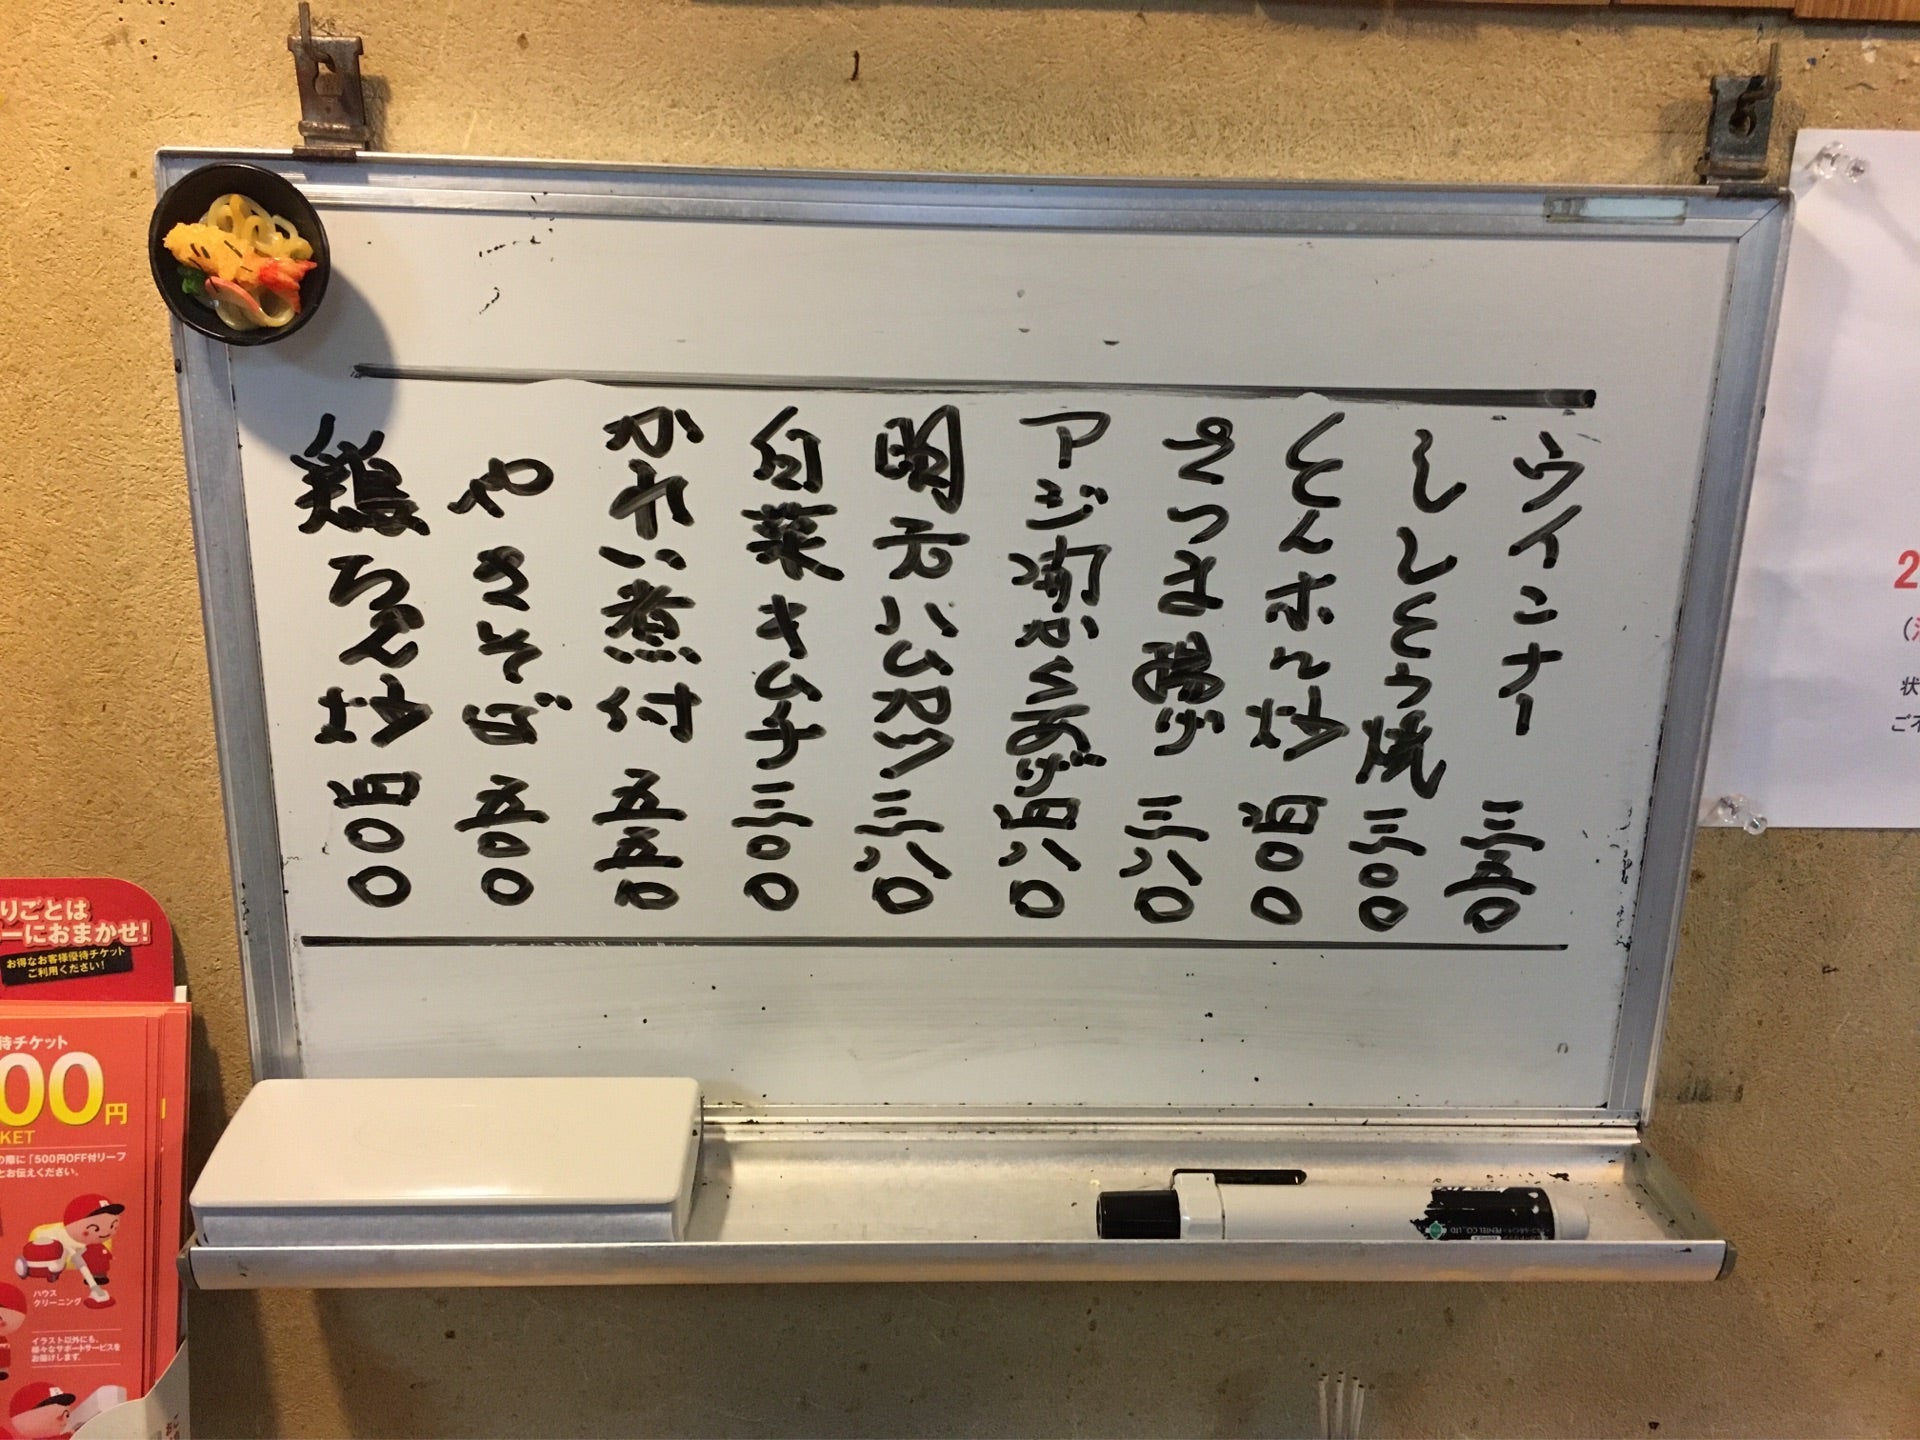 ウインナー 三五〇
ししとう焼 三〇〇
とんホル炒 四〇〇
さつま揚げ 三八〇
アジ南かくあげ 四八〇
明元ハムカツ 三八〇
白菜キムチ 三〇〇
かれい煮付 五五〇
やきそば 五〇〇
鶏ちゃん炒 四〇〇
りごとは
ーにおまかせ!
お得なお客様優待チケット
ご利用ください!
待チケット
00円
KET
の際に「500円OFF付リーフ
とお伝えください。
ハウス
クリーニング
イラスト以外にも、
様々なサポートサービスを
お届けします。
2
状
ご不
PENTEL CO., LTD